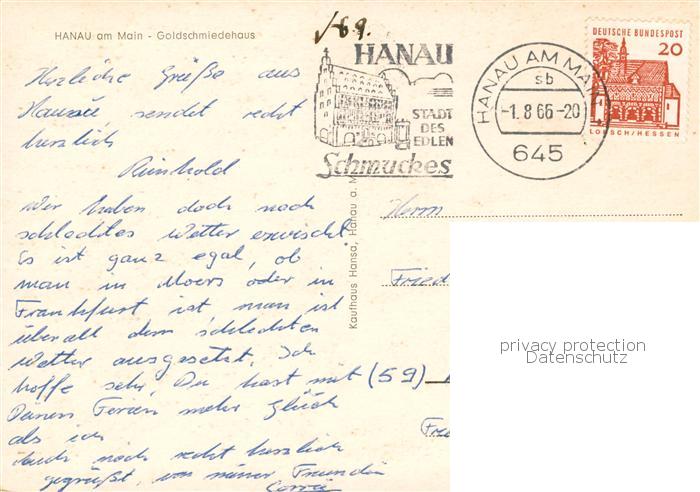 HANAU am Main - Goldschmiedehaus
89.
HANAU
STADT
DES
EDLEN
Schmuckes
HANAU AM MAIN
sb
-1.8.66-20
645
DEUTSCHE BUNDESPOST
20
LORSCH/HESSEN
Herzliche Grüße aus
Hanau sendet recht
herzlich
Reinhold
Wir haben doch noch
schlechtes Wetter erwischt
Es ist ganz egal, ob
man in Moers oder in
Frankfurt ist man ist
überall dem schlechten
Wetter ausgesetzt. Ich
hoffe sehr, Du hast mit
Deinen Ferien mehr Glück
als ich
auch noch recht herzlich
gegrüßt, von meiner Freundin
Kaufhaus Hansa, Hanau a. M
Herrn
Fried
(59)
Frie
privacy protection
Datenschutz